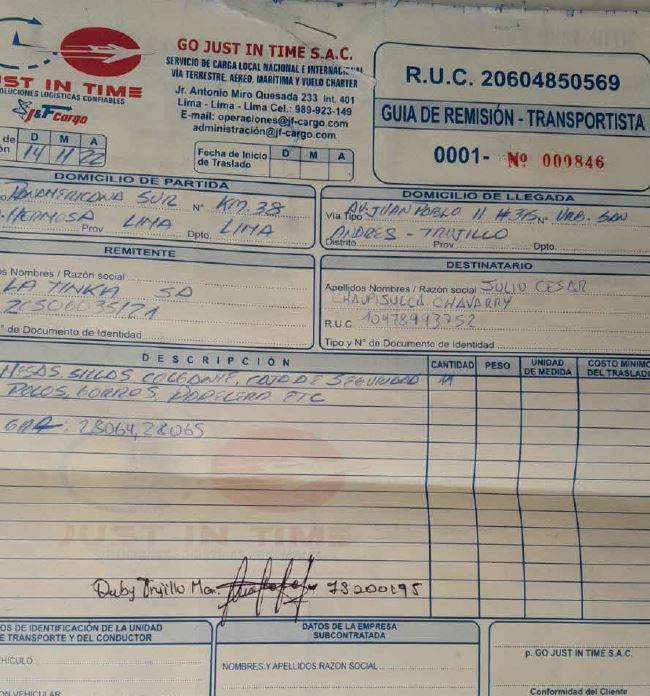 GO JUST IN TIME S.A.C.
SERVICIO DE CARGA LOCAL NACIONAL E INTERNACIONAL
VÍA TERRESTRE, AÉREO, MARÍTIMA Y VUELO CHARTER
Jr. Antonio Miro Quesada 233 Int. 401
Lima - Lima - Lima Cel.: 989-923-149
E-mail: operaciones@jf-cargo.com
administración@jf-cargo.com
UST IN TIME
OLUCIONES LOGISTICAS CONFIABLES
J&F Cargo
R.U.C. 20604850569
GUIA DE REMISIÓN - TRANSPORTISTA
0001- Nº 000846
de D M A
ón 14 11 22
Fecha de Inicio de Traslado D M A
DOMICILIO DE PARTIDA
SUR Nº KM.38
HERMOSA Prov LIMA Dpto. LIMA
DOMICILIO DE LLEGADA
Vía Tipo AV. JUAN PABLO II Nº URB. SAN
ANDRES - TRUJILLO
Distrito Prov Dpto.
REMITENTE
os Nombres / Razón social
LA TINKA SA
20506035121
º de Documento de Identidad
DESTINATARIO
Apellidos Nombres / Razón social JULIO CESAR
CHAVARRY
R.U.C. 10478943752
Tipo y Nº de Documento de Identidad
DESCRIPCIÓN CANTIDAD PESO UNIDAD DE MEDIDA COSTO MINIMO DEL TRASLADO
MESAS, SILLAS, CAJA DE SEGURIDAD
POLOS, GORROS, PAPELERA ETC
: 28064, 28065
JUST IN TIME
Duby Trujillo Mar. 73200195
OS DE IDENTIFICACIÓN DE LA UNIDAD
E TRANSPORTE Y DEL CONDUCTOR
EHICULO
ÓN VEHICULAR
DATOS DE LA EMPRESA
SUBCONTRATADA
NOMBRES Y APELLIDOS RAZON SOCIAL
p. GO JUST IN TIME S.A.C.
Conformidad del Cliente